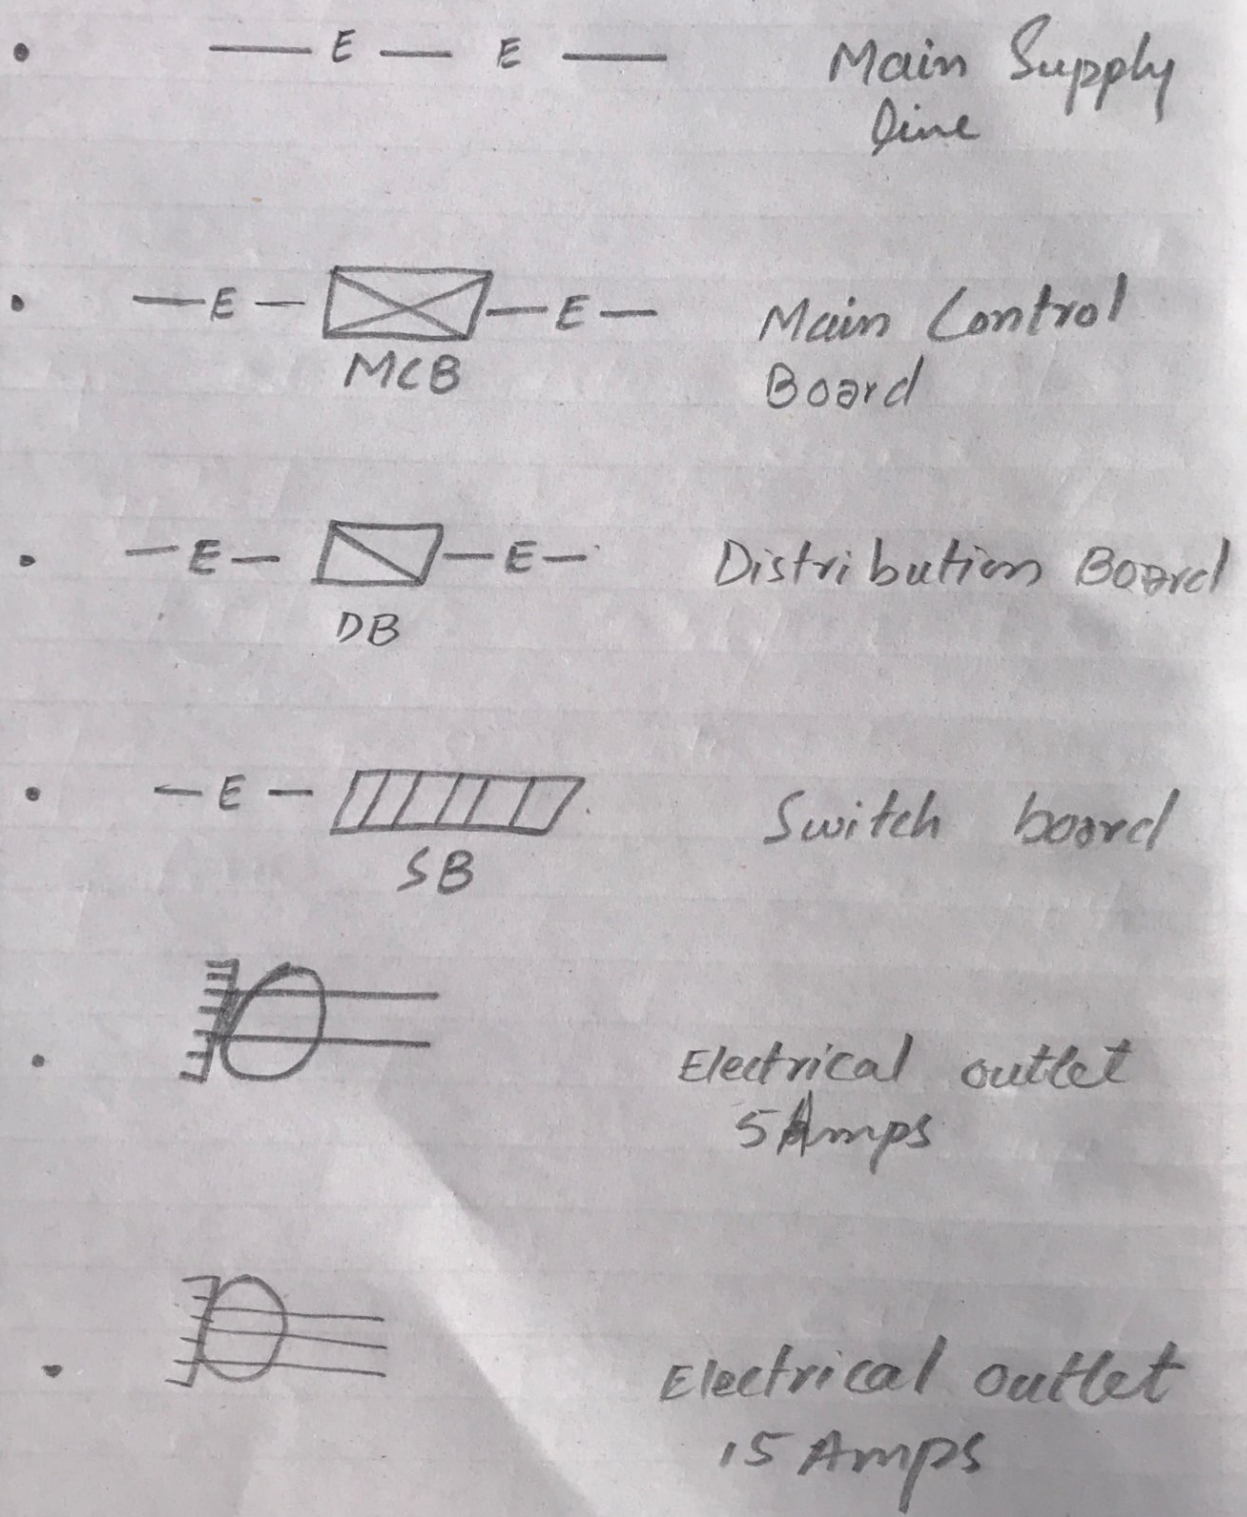 — E — E — Main Supply
line
— E — — E — Main Control
MCB Board
— E — — E — Distribution Board
DB
— E — Switch board
SB
Electrical outlet
5 Amps
Electrical outlet
15 Amps